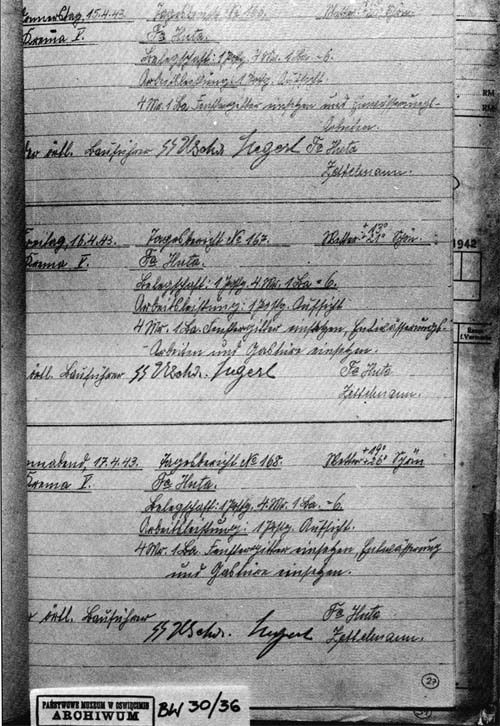 Donnerstag, 15.4.43. Tagesbericht № 166. Wetter Schön
Krema V. Fa Huta.
Belegschaft: 1 Postg. 4 Mr. 1 La. - 6.
Arbeitsleistung: 1 Postg. Aufsicht.
4 Mr. 1 La. Fenstergitter einsetzen und Entwässerungs-
Arbeiten.
örtl. Bauführer SS Uscha. Fa Huta
Zettelmann.
Freitag, 16.4.43. Tagesbericht № 167. Wetter Schön.
Krema V. Fa Huta.
Belegschaft: 1 Postg. 4 Mr. 1 La - 6.
Arbeitsleistung: 1 Postg. Aufsicht
4 Mr. 1 La. Fenstergitter einsetzen, Entwässerungs-
- Arbeiten und Gastüre einsetzen.
örtl. Bauführer SS Uscha. Fa Huta
Zettelmann.
Sonnabend, 17.4.43. Tagesbericht № 168. Wetter Schön
Krema V. Fa Huta.
Belegschaft: 1 Postg. 4 Mr. 1 La. - 6.
Arbeitsleistung: 1 Postg. Aufsicht.
4 Mr. 1 La. Fenstergitter einsetzen Entwässerung
und Gastüre einsetzen.
örtl. Bauführer Fa Huta
SS Uscha. Zettelmann.
27
1942
PAŃSTWOWE MUZEUM W OŚWIĘCIMIU
ARCHIWUM
BW 30/36